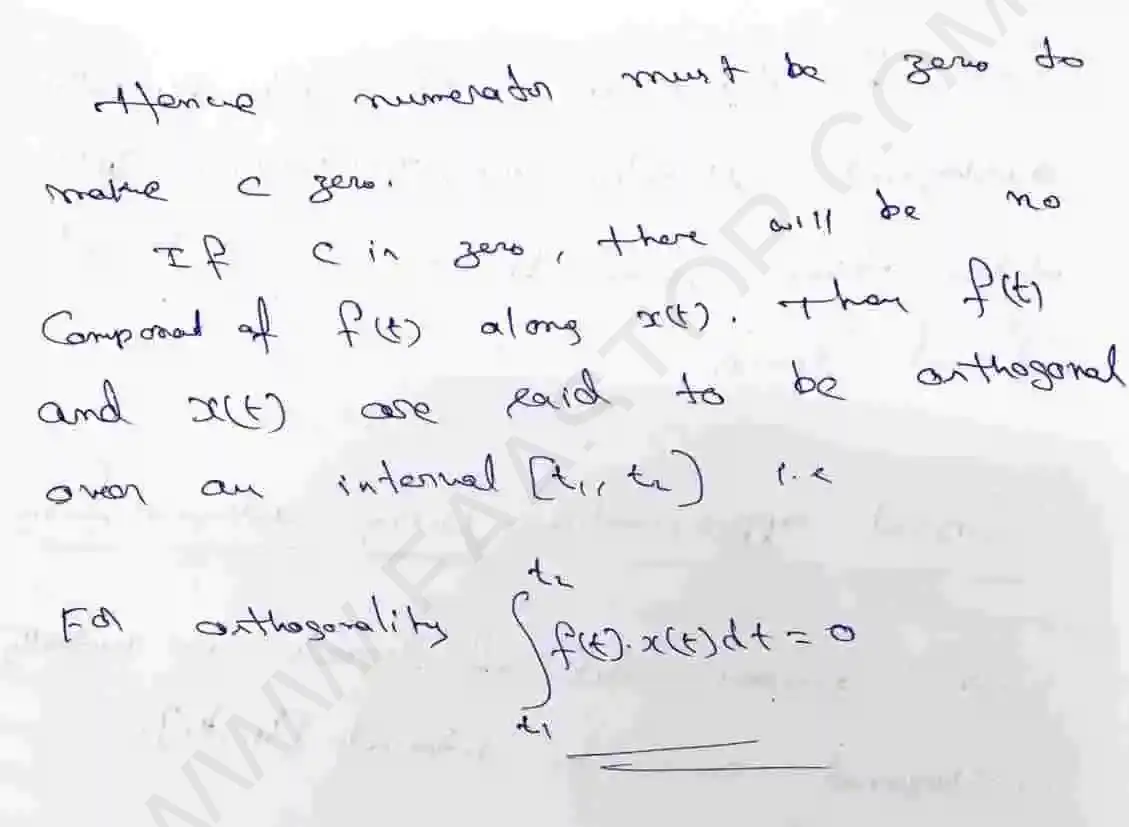 Hence numerator must be zero to
make C zero.
If C is zero, there will be no
Componat of f(t) along x(t). Then f(t)
and x(t) are said to be orthogonal
over an interval [t1, t2] i.e
For orthogonality ∫_{t1}^{t2} f(t).x(t)dt = 0
WWW.FAASTOP.COM